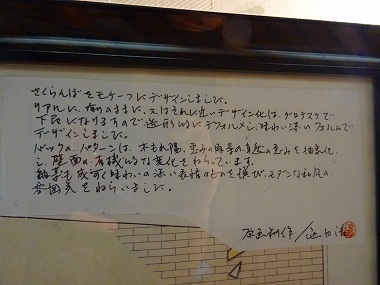 さくらんぼをモチーフにデザインしました。
リアルに、有りのままに、又はそれに近いデザイン化は、グロテスクで
下品になりますので造形的にデフォルメし、味わい深いフォルムで
デザインしました。
バックのパターンは、木もれ陽、恵みの雨等の自然の恵みを抽象化
し、壁面の有機的な変化をねらっています。
細事も成可く味わいの深い表情のものを選び、モダンな和風の
雰囲気をねらいました。
原画制作／